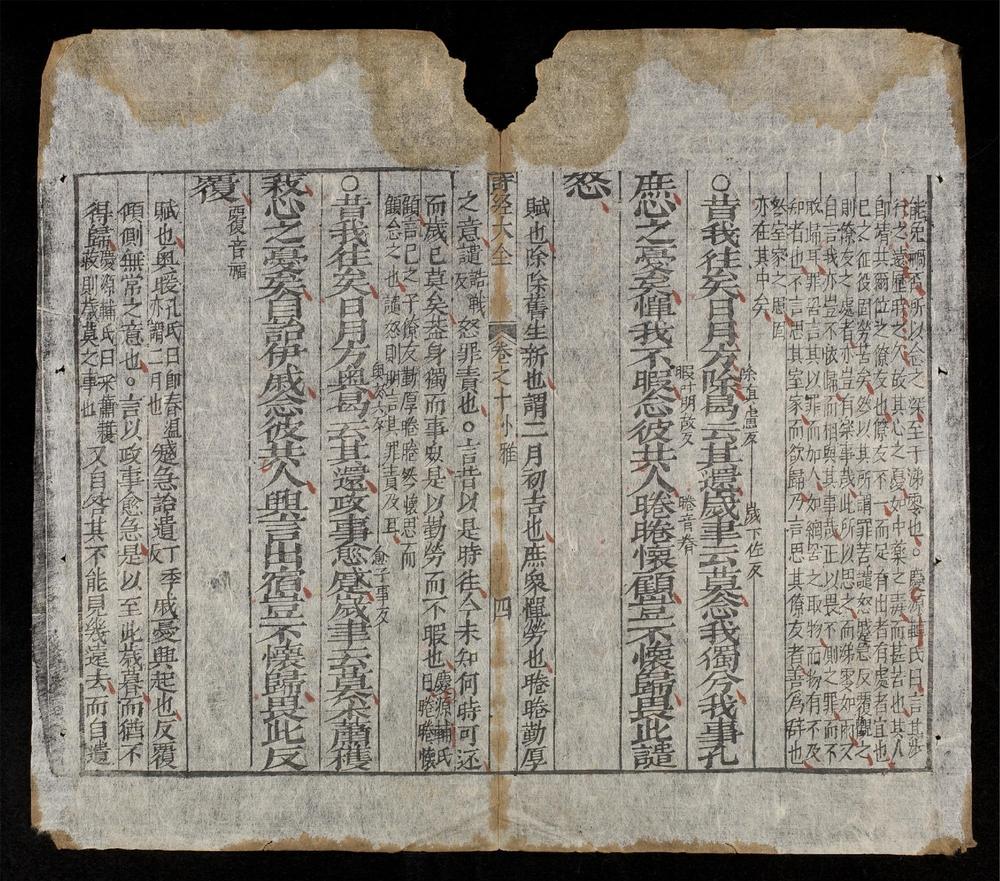 能免禍否所以念之深至于涕零也。慶源輔氏曰言其涉
行之遠歷時之久故其心之憂如中藥之毒而甚苦也其人
卽靖共爾位之僚友也僚友不一而足有出者有處者宜也
已之征役固勞苦矣然以其所謂罪苦譴怒蹙急反覆觀之
則僚友之處者亦豈有宴事哉此所以思之而涕零如雨又
自言我亦豈不依歸而相與其事哉正以畏不測之罪而不
敢歸耳罪罟言其以罪而加人如網罟之取物而物有不及
知者也不言思其室家而欲歸乃言思其僚友者善爲辭也
室家之思固
亦在其中矣
除直慮反
○昔我往矣日月方除曷云其還歲聿云莫念我獨兮我事孔
暇叶胡故反 睠音眷
庶心之憂矣憚我不暇念彼共人睠睠懷顧豈不懷歸畏此譴
怒
賦也除除舊生新也謂二月初吉也庶衆憚勞也睠睠勤厚
詩經大全 卷之十 小雅 四
之意譴怒罪責也○言昔以是時往今未知何時可還
而歲已莫矣蓋身獨而事衆是以勤勞而不暇也慶源輔氏
曰睠睠懷
顧言己之于僚友勤厚睠睠然懷思而
顧念之也譴怒則明言其罪責及耳
奧於六反 愈子事反
○昔我往矣日月方奧曷云其還政事愈蹙歲聿云莫采蕭穫
菽心之憂矣自詒伊戚念彼共人興言出宿豈不懷歸畏此反
覆覆音福
賦也奧暖孔氏曰卽春溫
亦謂二月也蹙急詒遺戚憂興起也反覆
傾側無常之意也○言以政事愈急是以至此歲暮而猶不
得歸慶源輔氏曰采蕭穫
菽則歲莫之事也又自咎其不能見幾遠去而自遺